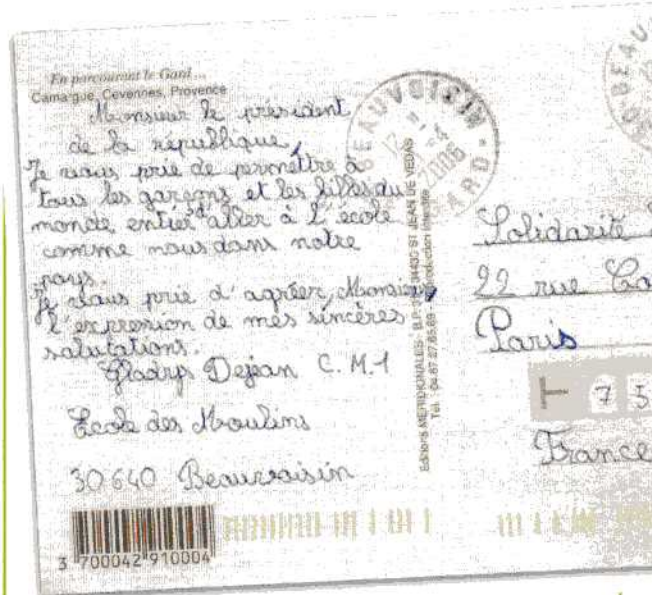 En parcourant le Gard...
Camargue, Cévennes, Provence
Monsieur le président
de la république,
Je vous prie de permettre à
tous les garçons et les filles du
monde entier d'aller à l'école
comme nous dans notre
pays.
Je vous prie d'agréer, Monsieur,
l'expression de mes sincères
salutations.
Gladys Dejean C.M.1
École des Moulins
30640 Beauvoisin
3 700042 910004
Editions MERIDIONALES - B.P. 34430 ST JEAN DE VEDAS
Tél. : 04.67.27.65.69 - Reproduction interdite
BEAUVOISIN
2006
GARD
Solidarité
22 rue
Paris
75
France